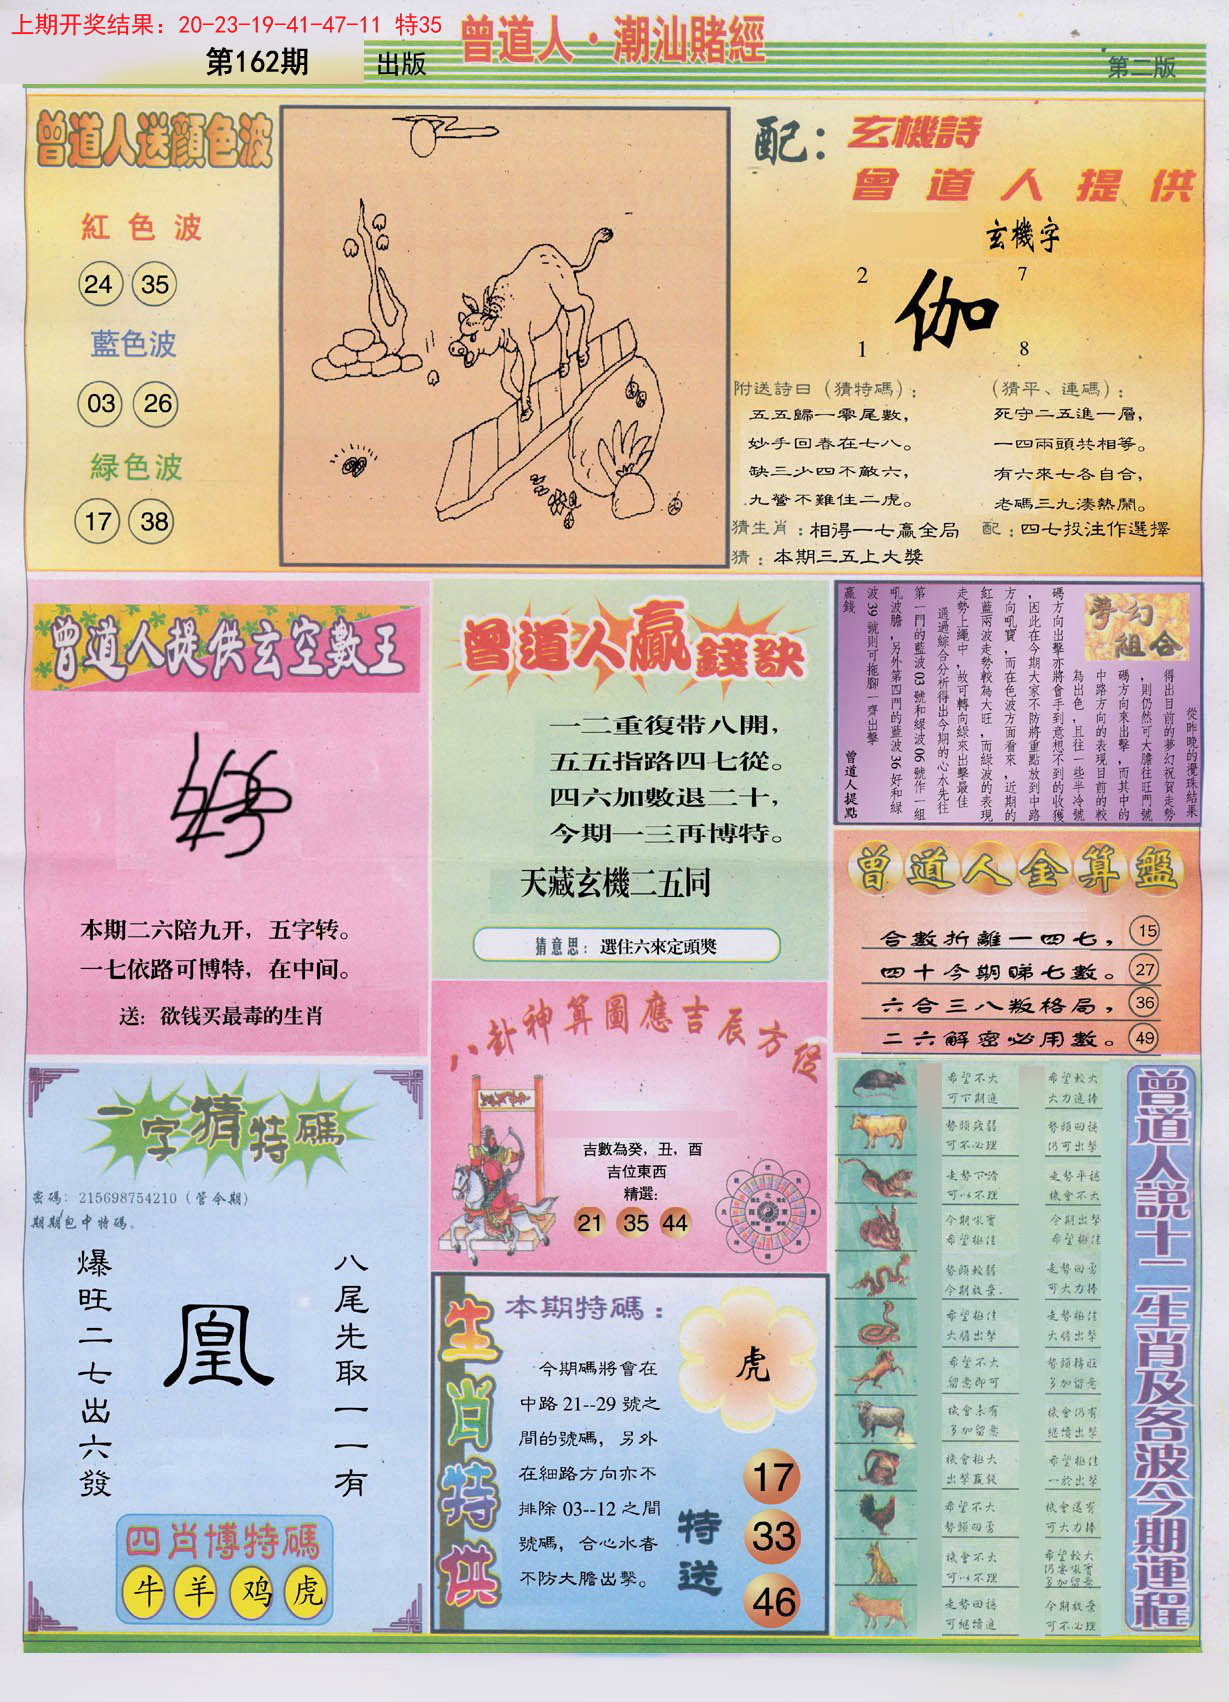 上期开奖结果：20-23-19-41-47-11 特35
第162期
出版
曾道人·潮汕賭經
第二版
曾道人送顏色波
紅色波
24 35
藍色波
03 26
緑色波
17 38
配：玄機詩
曾道人提供
玄機字
2 7
伽
1 8
附送詩曰（猜特碼）：
五五歸一零尾數，
妙手回春在七八。
缺三少四不敵六，
九警不難住二虎。
猜生肖：相得一七贏全局
猜：本期三五上大獎
（猜平、連碼）：
死守二五進一層，
一四兩頭共相等。
有六來七各自合，
老碼三九湊熱鬧。
配：四七投注作選擇
曾道人提供玄空數王
本期二六陪九开，五字转。
一七依路可博特，在中间。
送：欲钱买最毒的生肖
曾道人贏錢訣
一二重復带八開，
五五指路四七從。
四六加數退二十，
今期一三再博特。
天藏玄機二五同
猜意思：選住六來定頭獎
夢幻組合
從昨晚的攪珠結果
得出目前的夢幻祝賀走勢
，則仍然可大膽往旺門號
碼方向來出擊，而其中的
中路方向的表現目前的較
為出色，且往一些半冷號
碼方向出擊亦將會手到意想不到的收獲
，因此在今期大家不防將重點放到中路
方向吼寶，而在色波方面看來，近期的
紅藍兩波走勢較為大旺，而綠波的表現
走勢上繩中，故可轉向綠來出擊最佳
通過綜合分析得出今期的心水先往
第一門的藍波03號和綠波06號作一組
吼波膽，另外第四門的藍波36好和綠
波39號則可拖腳一齊出擊
贏錢
曾道人提點
曾道人金算盤
合數折離一四七， 15
四十今期睇七數。 27
六合三八叛格局， 36
二六解密必用數。 49
八卦神算圖應吉辰方位
吉數為癸，丑，酉
吉位東西
精選：
21 35 44
一字猜特碼
密碼：215698754210（管令期）
期期包中特碼。
爆旺二七出六發
凰
八尾先取一一有
四肖博特碼
牛 羊 鸡 虎
生肖特供
本期特碼：
虎
今期碼將會在
中路21--29號之
間的號碼，另外
在細路方向亦不
排除03--12之間
號碼，合心水者
不防大膽出擊。
特送
17
33
46
曾道人説十二生肖及各波今期運程
希望不大 希望較大
可下期進 大力進捧
勢頭疲弱 勢頭回揚
可不必理 仍可出擊
走勢下滑 走勢平穩
可以不理 機會不大
今期吼寶 今期出擊
希望極佳 希望極佳
勢頭較弱 走勢回勇
今期放棄. 可大力捧
希望極佳 走勢極佳
大膽出擊 大膽出擊
希望不大 勢頭轉旺
留意即可 多加留意
機會未有 機會仍有
多加留意 繼續出擊
機會極大 希望極佳
出擊贏錢 一於出擊
希望不大 機會還有
勢頭回勇 可大力捧
機會不大 希望較大
可以不理 仍要吼寶
多加留意
走勢回穩 今期放棄
可繼續進 可不必理